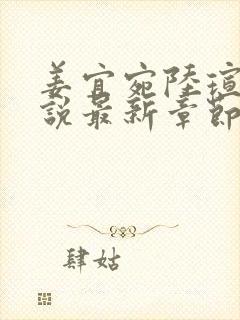 姜宜宛陸瑄
說最新章節
肆姑